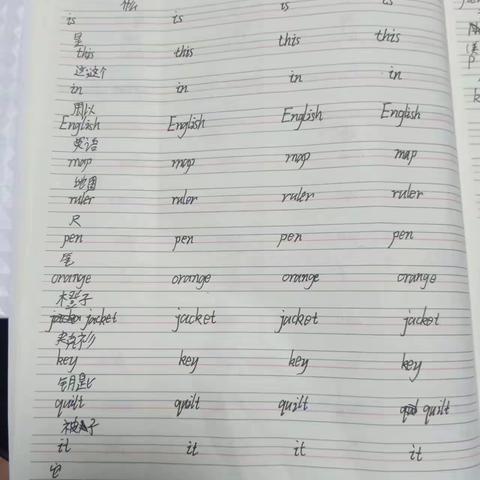 什么
is is is is
是
this this this this
这;这个
in in in in
用;以
English English English English
英语
map map map map
地图
ruler ruler ruler ruler
尺
pen pen pen pen
笔
orange orange orange orange
橙子
jacket jacket jacket jacket
key key key key
钥匙
quilt quilt quilt quilt
被子
it it it it
它